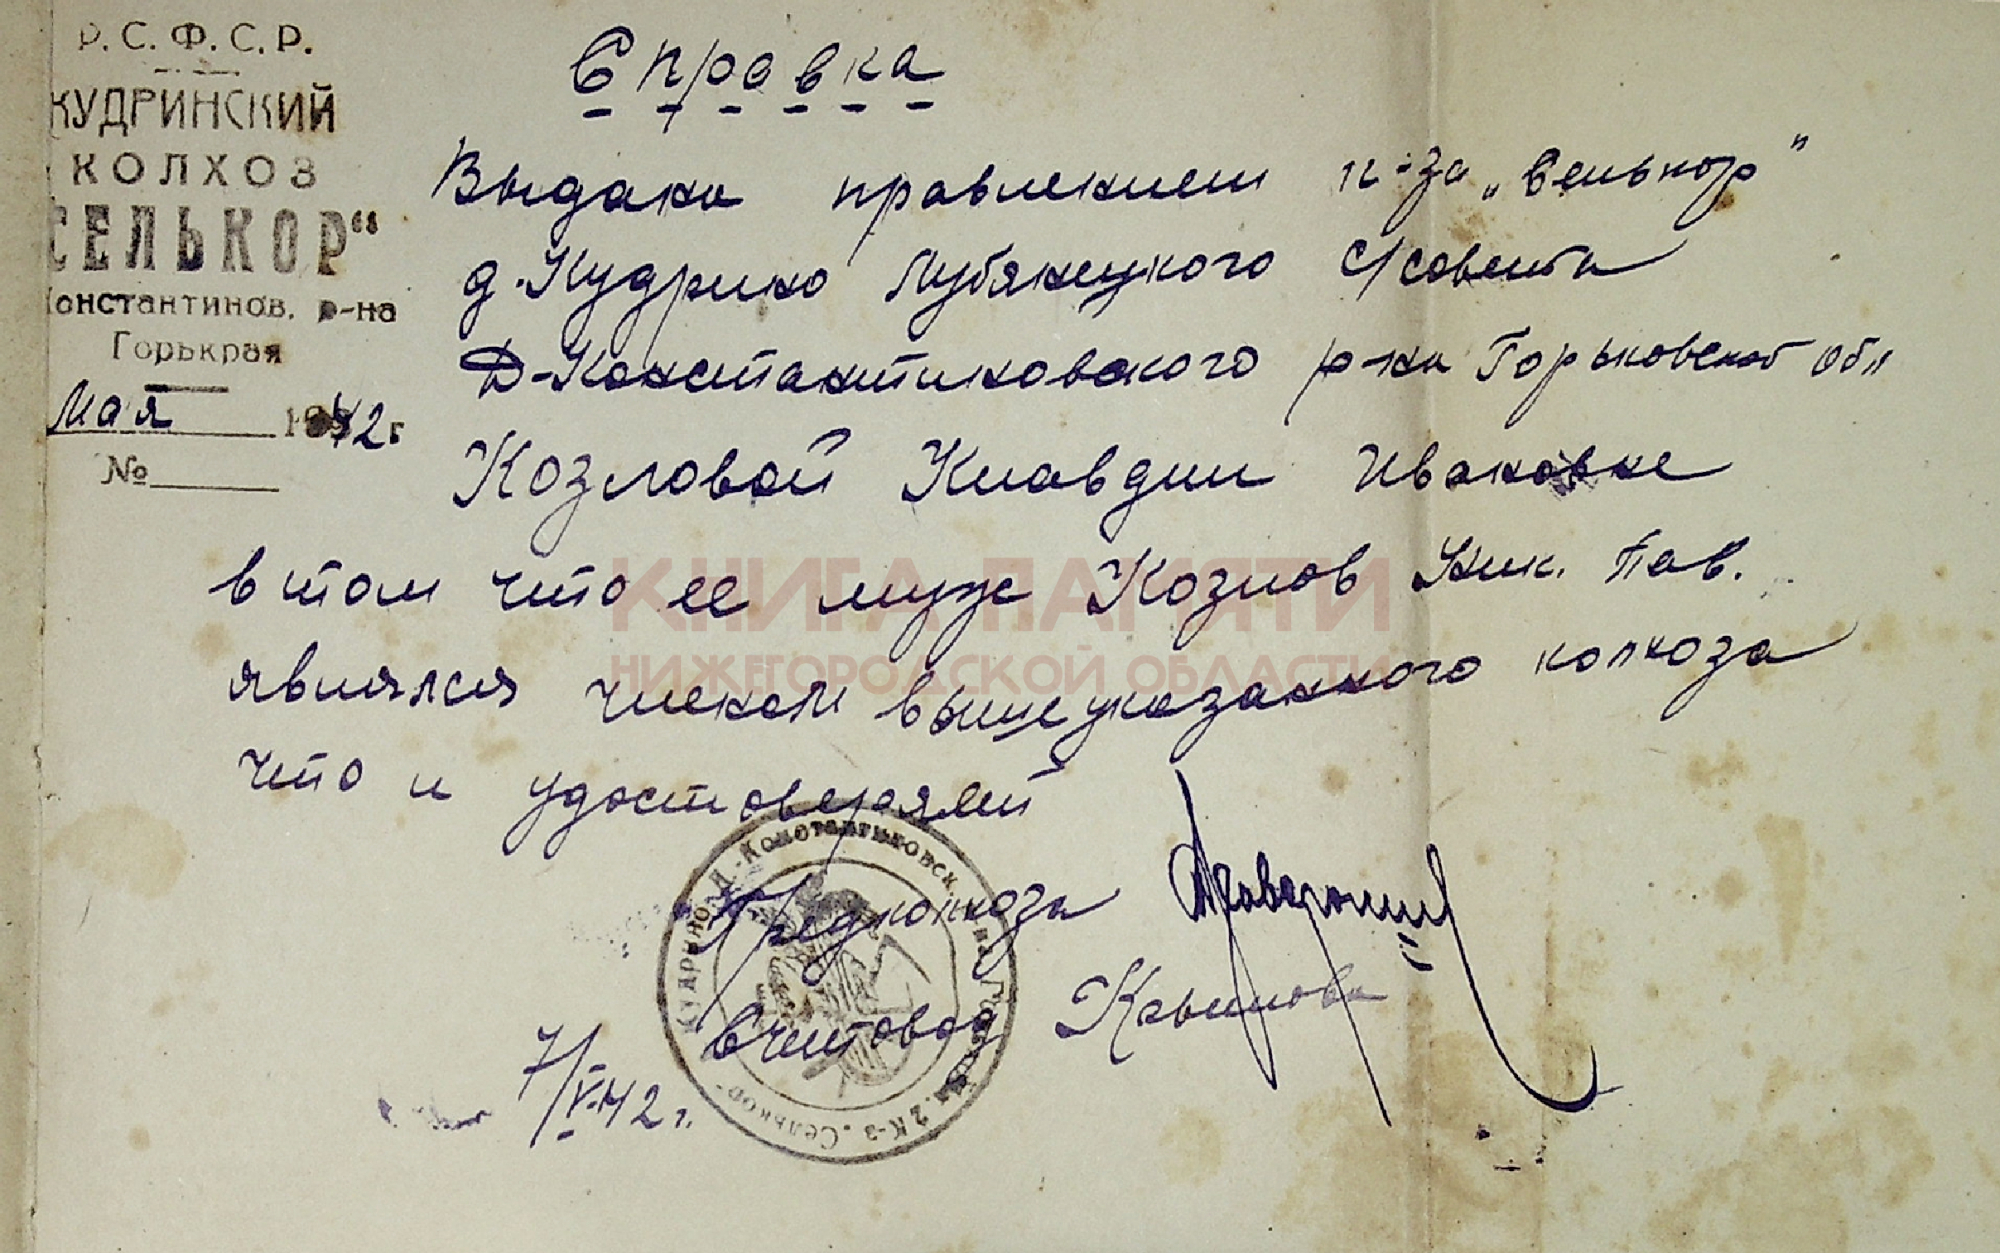 Р.С.Ф.С.Р.
КУДРИНСКИЙ
КОЛХОЗ
СЕЛЬКОР"
Константинов. р-на
Горькрая
Мая 1942 г
№
Справка
Выдана правлением к-за „Селькор"
д. Кудрино Лубянецкого с/совета
Д-Константиновского р-на Горьковской обл
Козловой Клавдии Ивановне
в том что ее муж Козлов Ник. Пав.
являлся членом вышеуказанного колхоза
что и удостоверяем
Предколхоза
Счетовод
7/V-42 г.
Кудрино Д.-Константиновск. к-з „Селькор"
КНИГА ПАМЯТИ
НИЖЕГОРОДСКОЙ ОБЛАСТИ